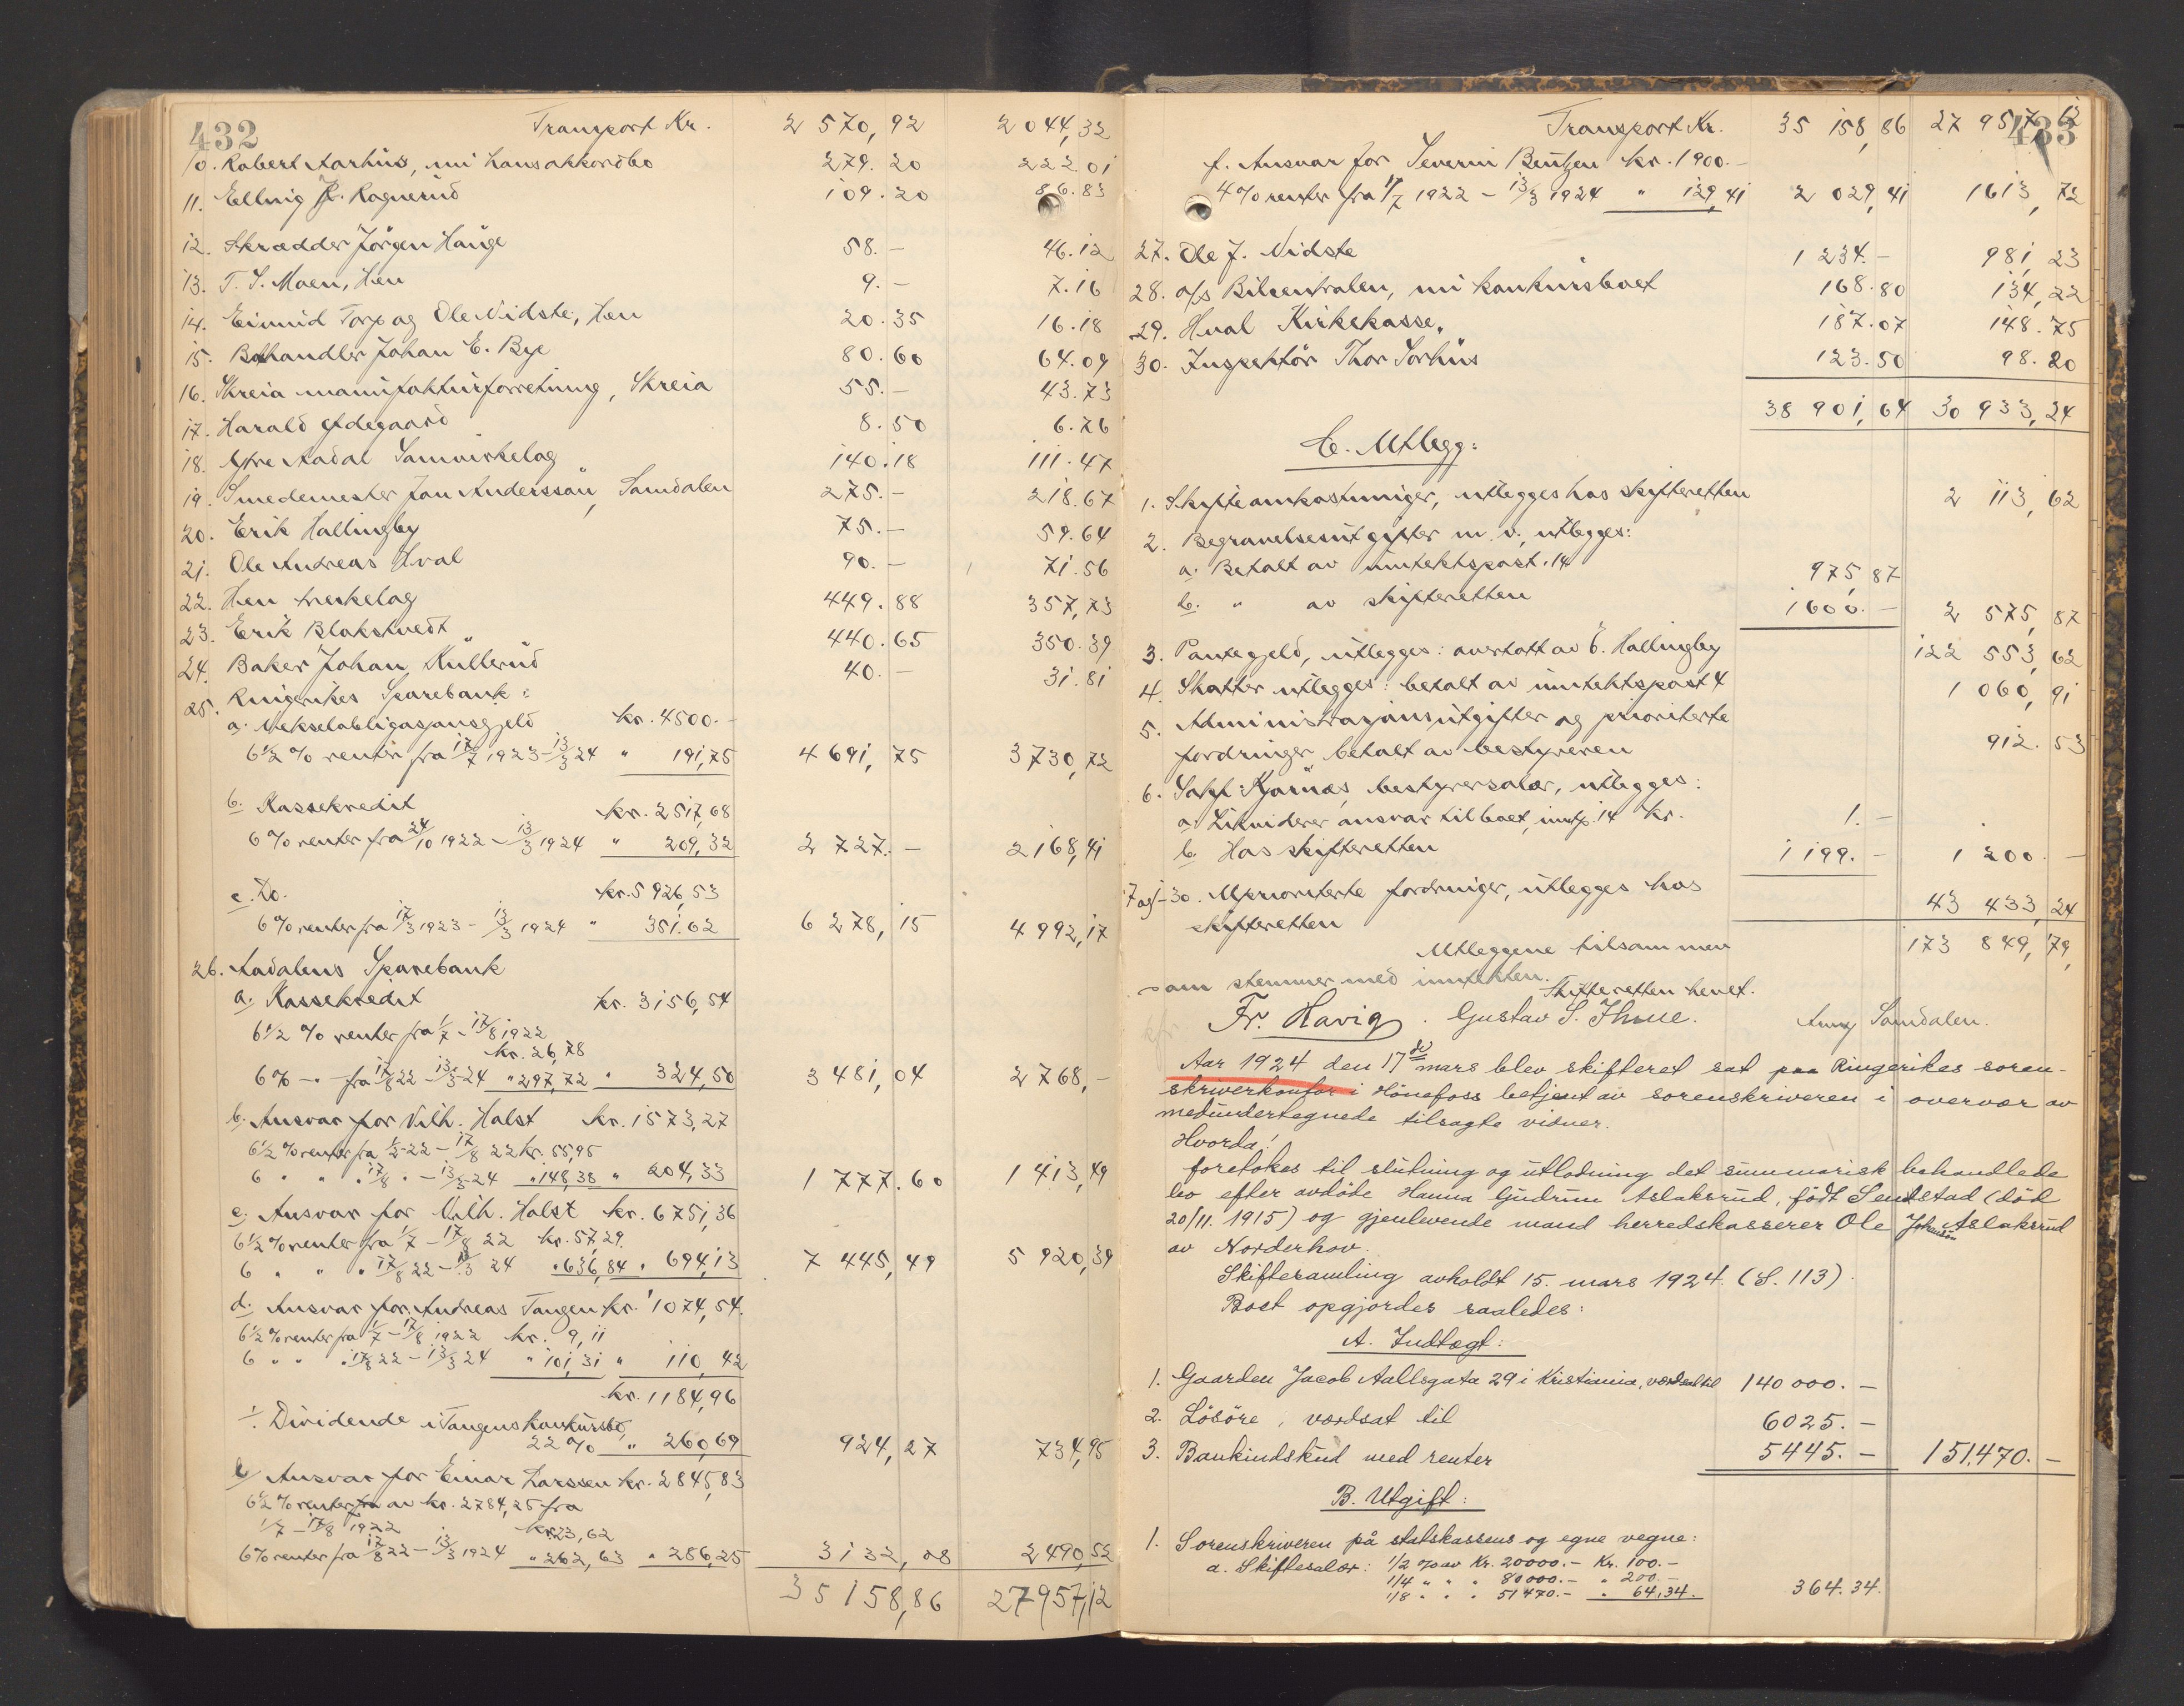 432
Transport Kr. 2 570,92 2 044,32
10. Robert Aarhus, nu hans akkordbo 279.20 222.01
11. Ellnig Fr. Ragnerud 109.20 86.83
12. Skrædder Jörgen Hauge 58.- 46.12
13. T. S. Moen, Hen 9.- 7.16
14. Eivind Torp og Ole Vidste, Hen 20.35 16.18
15. Bokhandler Johan E. Bye 80.60 64.09
16. Skreia manufakturforretning, Skreia 55.- 43.73
17. Harald Ødegaard 8.50 6.76
18. Ytre Aadal Samvirkelag 140.18 111.47
19. Smedemester Jan Anderssön, Samdalen 275.- 218.67
20. Erik Hallingby 75.- 59.64
21. Ole Andreas Hval 90.- 71.56
22. Hen treskelag 449.88 357,73
23. Erik Blakstvedt 440.65 350.39
24. Baker Johan Kullerud 40.- 31.81
25. Ringerikes Sparebank:
a. Vekselobligasjonsgjeld kr. 4500.-
6½ % renter fra 17/7 1923 - 13/3 24 " 191,75 4 691,75 3 730,72
b. Kassekredit kr. 2517,68
6 % renter fra 24/10 1922 - 13/3 1924 " 209,32 2 727.- 2 168,41
c. Do. kr. 5 926,53
6 % renter fra 17/3 1923 - 13/3 1924 " 351.62 6 278,15 4 992,17
26. Aadalens Sparebank
a. Kassekredit kr. 3156,54
6½ % renter fra 1/7 - 17/8 1922
kr. 26,78
6 % -"- fra 17/8 22 - 13/3 24 " 297,72 " 324,50 3 481,04 2 768,-
b. Ansvar for Vilh. Halst kr. 1573,27
6½ % renter fra 1/2 22 - 17/8 22 kr. 55,95
6 " " " 17/8 " - 13/3 24 " 148,38 " 204,33 1 777.60 1 413,49
c. Ansvar for Vilh. Halst kr. 6751,36
6½ % renter fra 1/7 - 17/8 22 kr. 57,29.
6 " " " 17/8 22 - 13/3 24 " 636,84 " 694,13 7 445,49 5 920,39
d. Ansvar for Andreas Tangen kr. 1074,54.
6½ % renter fra 1/7 - 17/8 1922 kr. 9,11
6 " " " 17/8 22 - 13/3 24 " 101,31 " 110,42
kr. 1184,96
÷ Dividende i Tangens konkursbo,
22 % " 260,69 924,27 734,95
e/ Ansvar for Einar Larssen kr. 2845,83
6½ % renter fra av kr. 2784,25 fra
1/7 - 17/8 1922 kr. 23,62
6 % renter fra 17/8 22 - 13/3 1924 " 262,63 " 286,25 3132,08 2490,52
35158,86 27957,12
433
Transport Kr. 35 158,86 27 957,12
f. Ansvar for Severin Bentzen kr. 1900.-
4 % renter fra 1/7 1922 - 13/3 1924 " 129,41 2 029,41 1613,72
27. Ole J. Vidste 1 234.- 981,23
28. A/s Bilcentralen, nu konkursboet 168.80 134,22
29. Hval Kirkekasse, 187.07 148.75
30. Inspektör Thor Sörhus 123.50 98.20
38 901,64 30 933,24
C. Utlegg:
1. Skifteomkostninger, utlegges hos skifteretten 2 113,62
2. Begravelsesutgifter m. v., utlegges:
a. Betalt av inntektspost 14 975,87
b. " av skifteretten 1600.- 2 575,87
3. Pantegjeld, utlegges: overtatt av E. Hallingby 122 553,62
4. Skatter utlegges: betalt av inntektspost 4 1 060,91
5. Administrasjonsutgifter og prioriterte
fordringer, betalt av bestyreren 912.53
6. Sakf. Kjörnæs, bestyrersalær, utlegges:
a. Likviderer ansvar til boet, inntp. 14 kr. 1.-
b. Hos skifteretten 1 199.- 1 200.-
7 og - 30. Uprioriterte fordringer, utlegges hos
skifteretten 43 433,24
Utleggene tilsammen 173 849,79,
som stemmer med inntekten.
Skifteretten hevet.
Fr. Havig. Gustav S. Thue. Anny Samdalen.
Aar 1924 den 17de mars blev skifteret sat paa Ringerikes soren-
skriverkontor i Hönefoss betjent av sorenskriveren i overvær av
medundertegnede tilsagte vidner.
Hvorda!
foretokes til slutning og utlodning det summarisk behandlede
bo efter avdöde Hanna Gudrun Aslaksrud, födt Semstad (död
20/11. 1915) og gjenlevende mand herredskasserer Ole Johansön Aslaksrud
av Norderhov.
Skiftesamling avholdt 15. mars 1924. (S. 113).
Boet opgjordes saaledes:
A. Indtægt:
1. Gaarden Jacob Aallsgata 29 i Kristiania, værdsat til 140 000.-
2. Lösöre, værdsat til 6025.-
3. Bankindskud med renter 5445.- 151.470.-
B. Utgift:
1. Sorenskriveren på statskassens og egne vegne:
a. Skiftesalær: 1/2 % av Kr. 20000.- Kr. 100.-
1/4 " " " 80000.- " 200.-
1/8 " " " 51470.- " 64.34. 364.34.